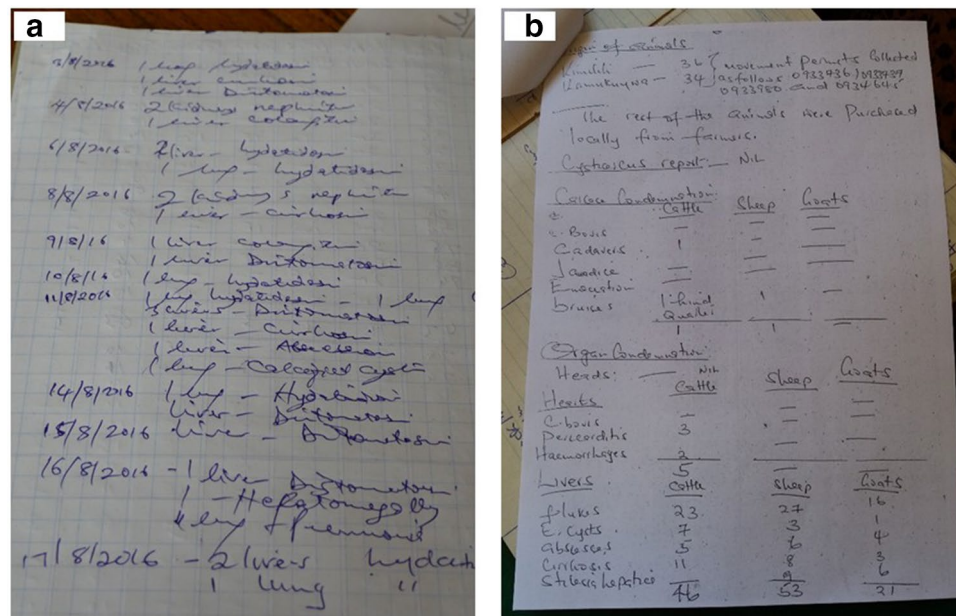 a
2/8/2016 1 lung hydatidosis
1 liver cirrhosis
1 liver Distomatosis
4/8/2016 2 kidney nephritis
1 liver
6/8/2016 2 liver - hydatidosis
1 lung - hydatidosis
8/8/2016 2 kidneys nephritis
1 liver - cirrhosis
9/8/16 1 liver
1 liver Distomatosis
10/8/16 1 lung - hydatidosis
11/8/2016 1 lung hydatidosis - 1 lung
3 livers - Distomatosis
1 liver - Cirrhosis
1 liver -
1 lung - Calcified Cysts
14/8/2016 1 lung - Hydatidosis
liver - Distomatosis
15/8/2016 liver - Distomatosis
16/8/2016 - 1 liver Distomatosis
1 - Hepatomegally
lung
17/8/2016 - 2 livers hydati
1 lung "
b
Origin of animals
Kimilili — 36 movement permits Collected
Kamukuywa — 34 as follows 0933936, 0933939
0933980 and 0934646
The rest of the animals were Purchased
locally from farmers.
Cysticercus report — NIL
Carcase Condemnation
Cattle Sheep Goats
C. Bovis — — —
Cadavers 1 — —
Jaundice — — —
Emaciation — — —
bruises 1-hind 1 —
Quarter
1 1 —
Organ Condemnation
Heads: — NIL
Cattle Sheep Goats
Hearts
C. bovis — — —
Pericarditis 3 — —
Haemorrhages 2 — —
5 — —
Livers Cattle Sheep Goats
flukes 23 27 16
E. Cysts 7 3 1
abscesses 5 6 4
Cirrhosis 11 8 3
Stilesia hepatica 9 6
46 53 21